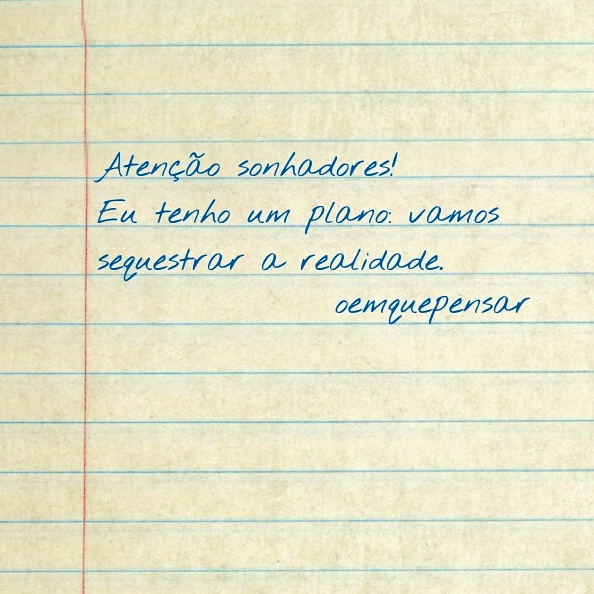 Atenção sonhadores!
Eu tenho um plano: vamos
sequestrar a realidade.
oemquepensar